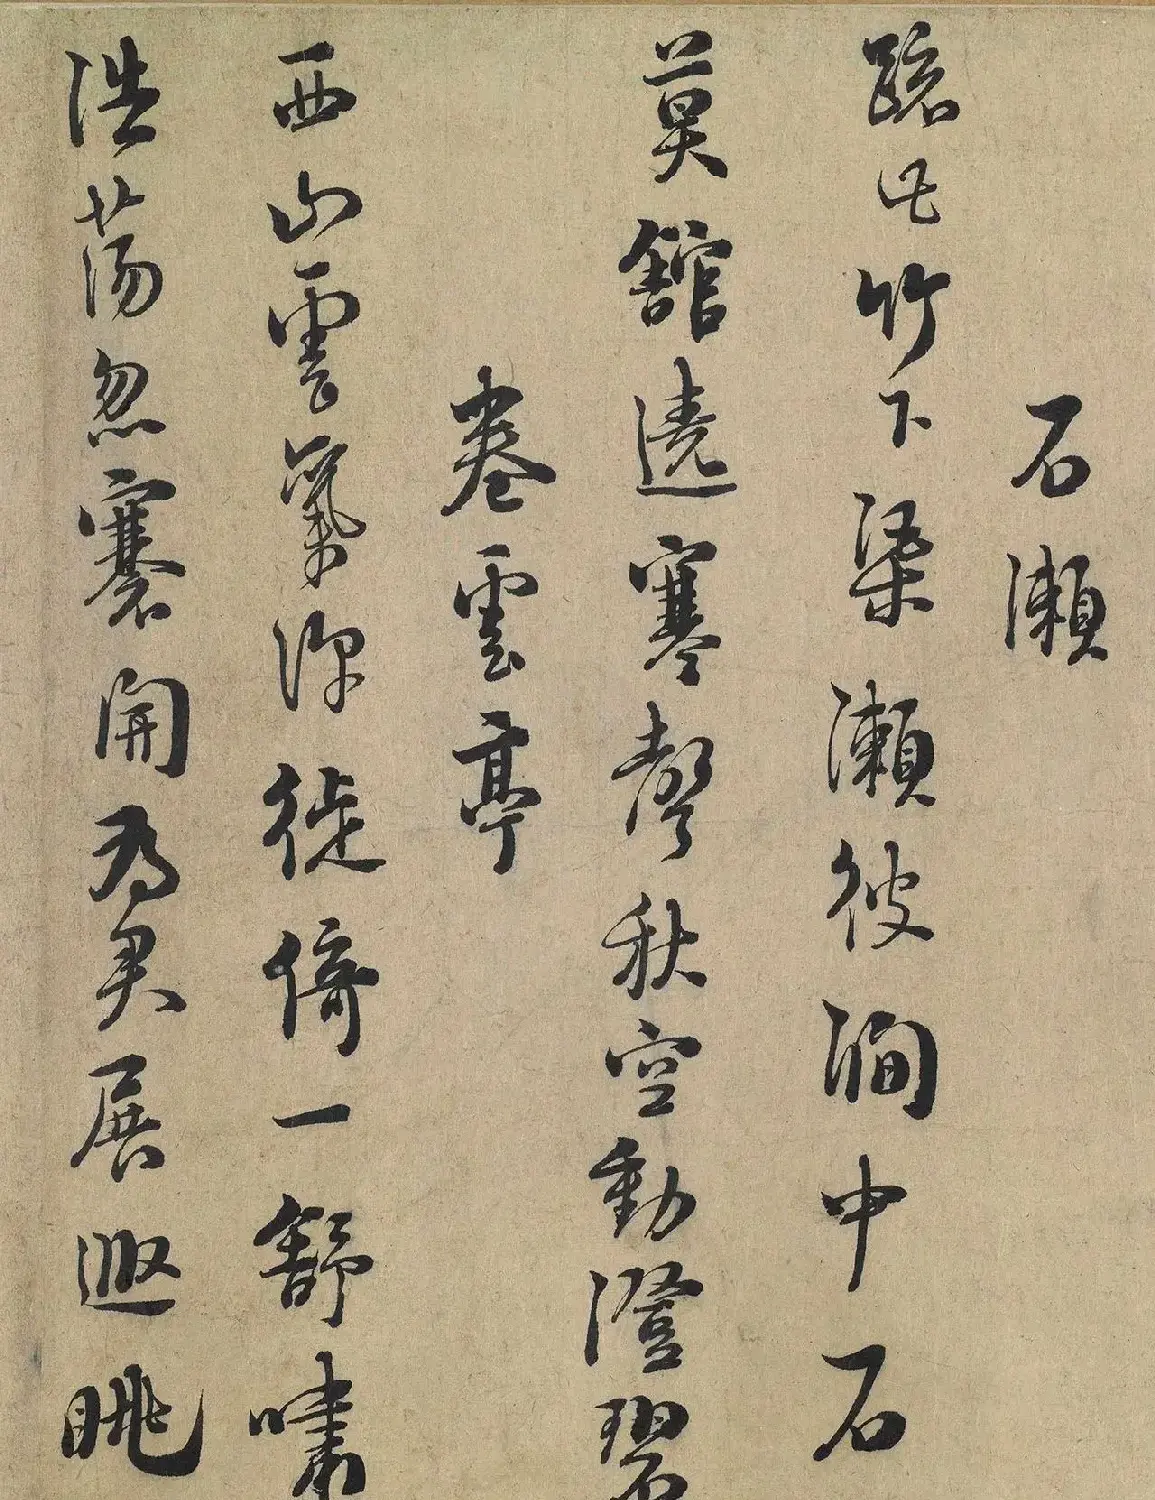 石瀨
疏此竹下渠瀨彼澗中石
莫舘遶寒聲秋空動澄碧
卷雲亭
西山雲氣深徙倚一舒嘯
浩蕩忽褰開為君展遐眺